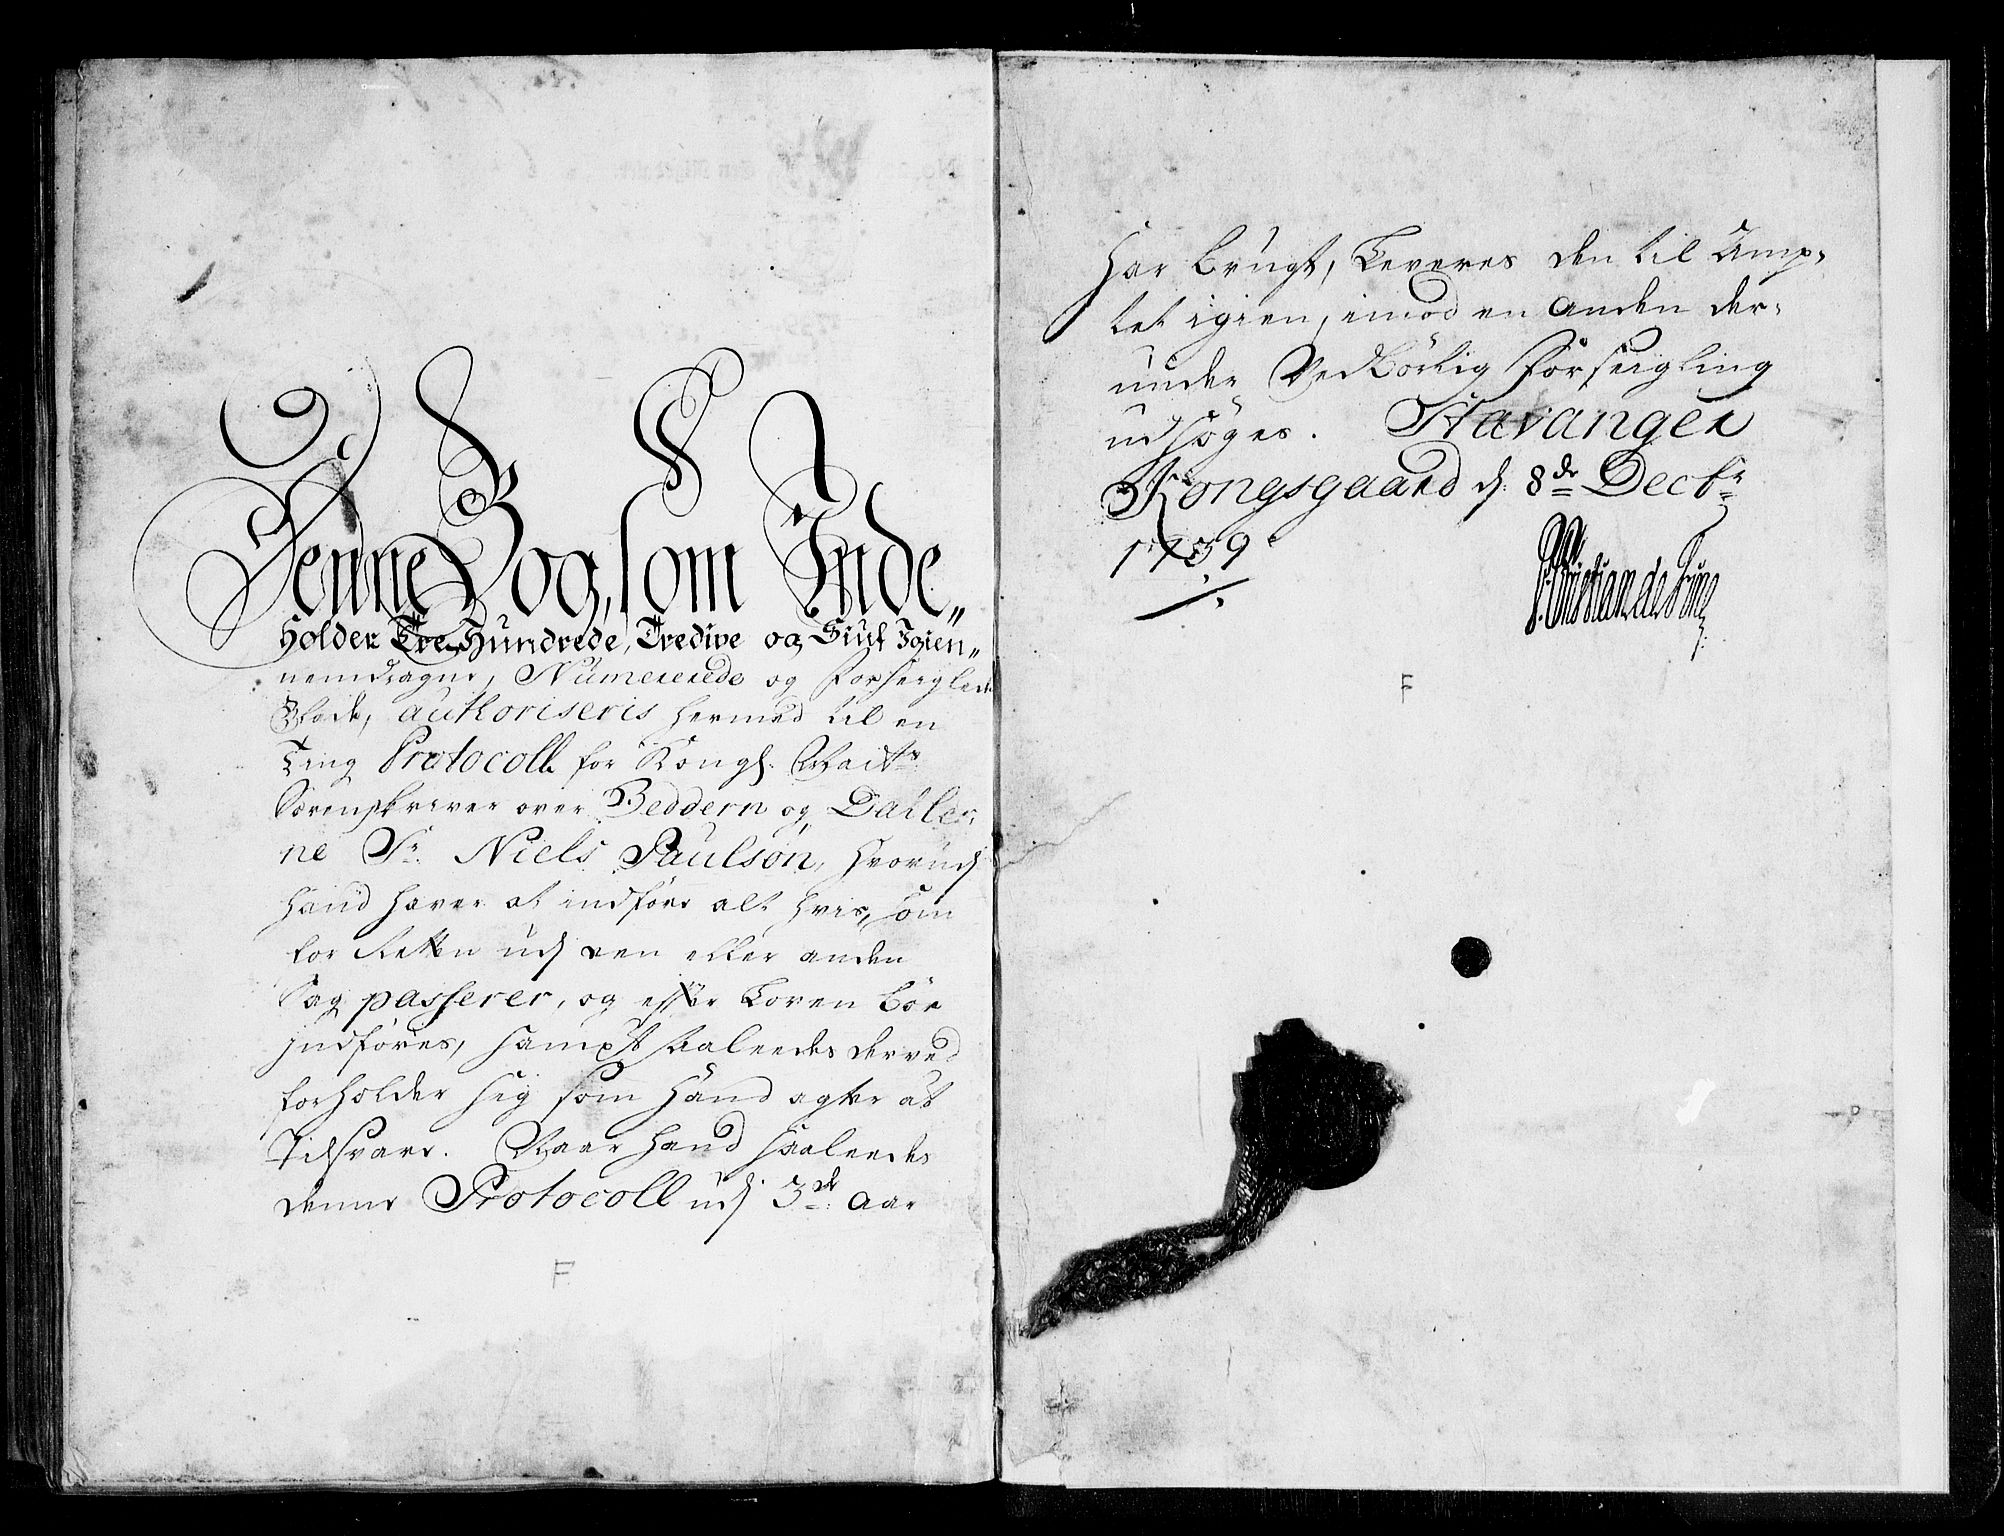 Denne Bog, som Inde„
Holder Tre Hundrede, Tredive og Siuf Igien„
nemdragne, Numererede og Forseiglede
Blade, authoriseris hermed til en
Ting Protocoll for Kongl. Maits
Sorenskriver over Jedderen og Daller„
ne Sr. Niels Paulson, hvorudj
hand haver at indføre alt hvis, som
for Retten udj een eller anden
Sag passerer, og efter Loven bør
jndføres, sampt saaleedes derved
forholder sig som hand agter at
Tilsvare. Naar hand saaleedes
denne Protocoll udj 3de Aar
F
har brugt, Leveres den til Amp„
tet igien, imod en anden der„
under Vedbørlig Forseigling
udsøges. Stavanger
Kongsgaard d: 8de Decbr
1739
Christian de Fine
F